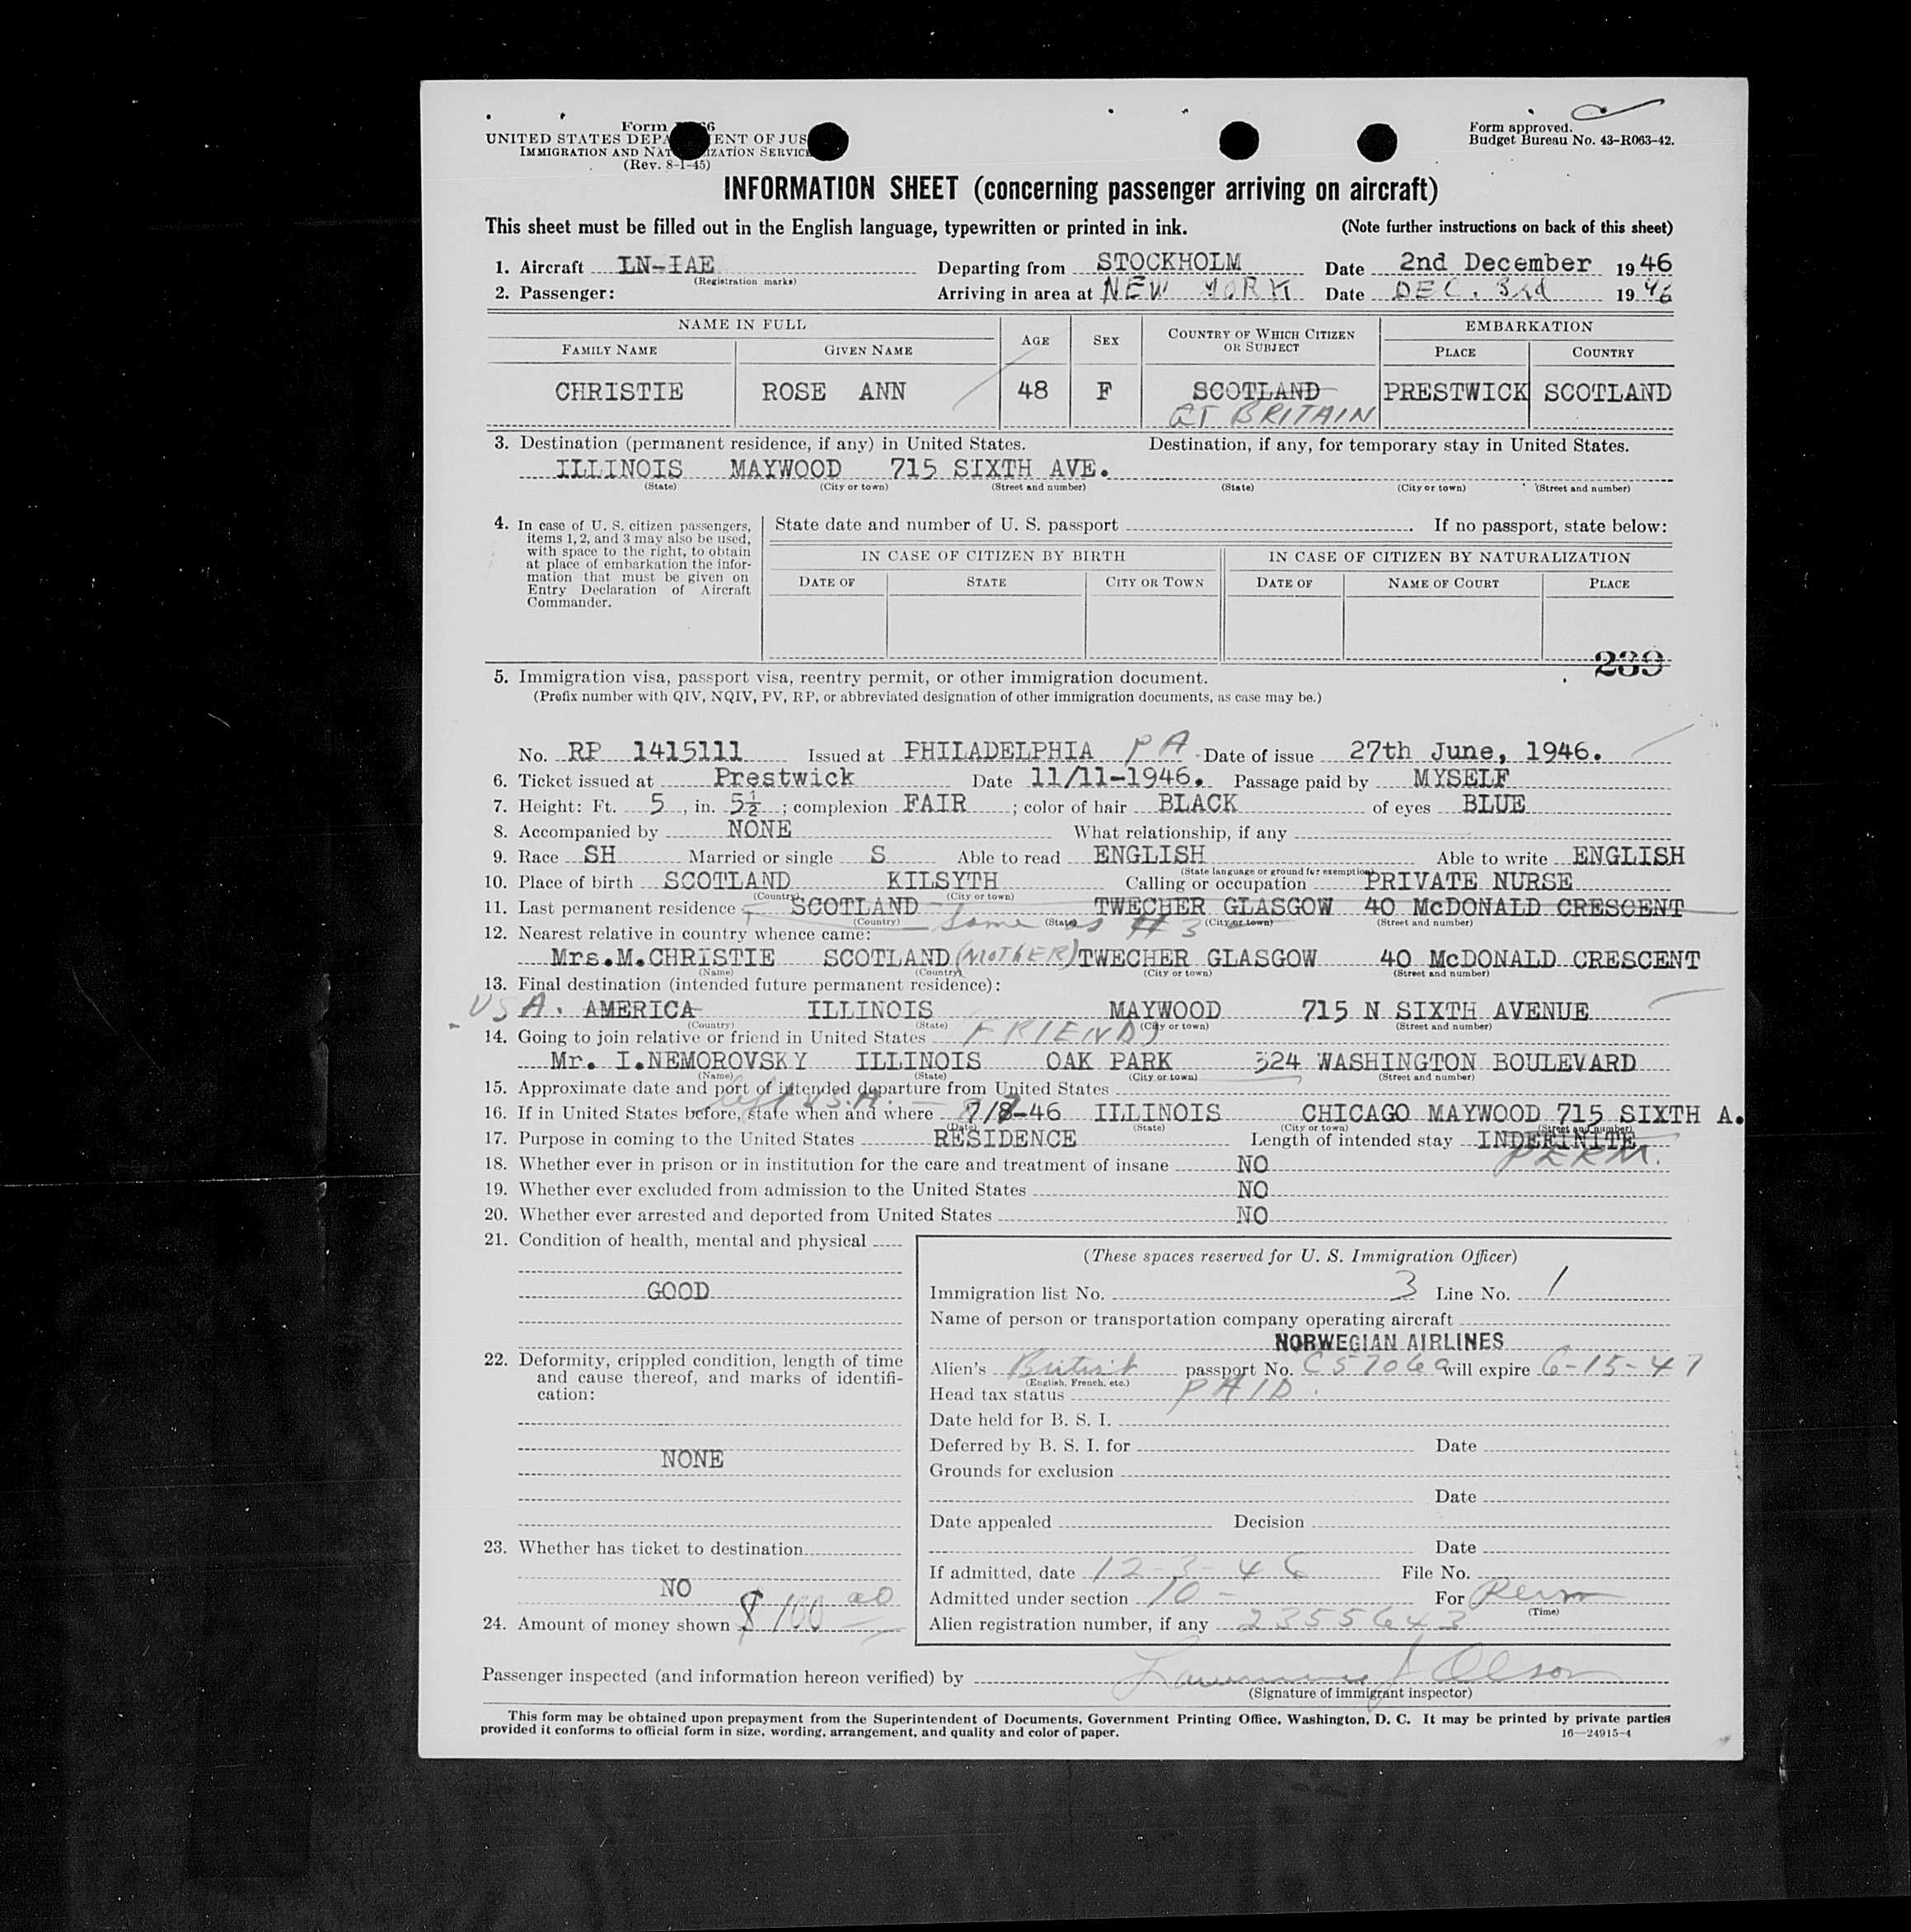 Form 66
UNITED STATES DEPA ENT OF JUS
IMMIGRATION AND NAT IZATION SERVICE
(Rev. 8-1-45)
Form approved.
Budget Bureau No. 43-R063-42.
INFORMATION SHEET (concerning passenger arriving on aircraft)
This sheet must be filled out in the English language, typewritten or printed in ink. (Note further instructions on back of this sheet)
1. Aircraft LN-IAE Departing from STOCKHOLM Date 2nd December 1946
(Registration marks)
2. Passenger: Arriving in area at NEW YORK Date DEC. 3rd 1946
NAME IN FULL AGE SEX COUNTRY OF WHICH CITIZEN OR SUBJECT EMBARKATION
FAMILY NAME GIVEN NAME PLACE COUNTRY
CHRISTIE ROSE ANN 48 F SCOTLAND PRESTWICK SCOTLAND
GT BRITAIN
3. Destination (permanent residence, if any) in United States. Destination, if any, for temporary stay in United States.
ILLINOIS MAYWOOD 715 SIXTH AVE.
(State) (City or town) (Street and number) (State) (City or town) (Street and number)
4. In case of U. S. citizen passengers, items 1, 2, and 3 may also be used, with space to the right, to obtain at place of embarkation the information that must be given on Entry Declaration of Aircraft Commander.
State date and number of U. S. passport . If no passport, state below:
IN CASE OF CITIZEN BY BIRTH IN CASE OF CITIZEN BY NATURALIZATION
DATE OF STATE CITY OR TOWN DATE OF NAME OF COURT PLACE
239
5. Immigration visa, passport visa, reentry permit, or other immigration document.
(Prefix number with QIV, NQIV, PV, RP, or abbreviated designation of other immigration documents, as case may be.)
No. RP 1415111 Issued at PHILADELPHIA PA Date of issue 27th June, 1946.
6. Ticket issued at Prestwick Date 11/11-1946. Passage paid by MYSELF
7. Height: Ft. 5, in. 5½; complexion FAIR; color of hair BLACK of eyes BLUE
8. Accompanied by NONE What relationship, if any
9. Race SH Married or single S Able to read ENGLISH Able to write ENGLISH
(State language or ground for exemption)
10. Place of birth SCOTLAND KILSYTH Calling or occupation PRIVATE NURSE
(Country) (City or town)
11. Last permanent residence SCOTLAND TWECHER GLASGOW 40 McDONALD CRESCENT
(Country) (State) (City or town) (Street and number)
Same as # 3
12. Nearest relative in country whence came:
Mrs.M.CHRISTIE SCOTLAND (MOTHER) TWECHER GLASGOW 40 McDONALD CRESCENT
(Name) (Country) (City or town) (Street and number)
13. Final destination (intended future permanent residence):
USA. AMERICA ILLINOIS MAYWOOD 715 N SIXTH AVENUE
(Country) (State) (City or town) (Street and number)
14. Going to join relative or friend in United States FRIEND
Mr. I.NEMOROVSKY ILLINOIS OAK PARK 324 WASHINGTON BOULEVARD
(Name) (State) (City or town) (Street and number)
15. Approximate date and port of intended departure from United States
left U.S.A.
16. If in United States before, state when and where 7/8-46 ILLINOIS CHICAGO MAYWOOD 715 SIXTH A.
(Date) (State) (City or town) (Street and number)
17. Purpose in coming to the United States RESIDENCE Length of intended stay INDEFINITE
PERM.
18. Whether ever in prison or in institution for the care and treatment of insane NO
19. Whether ever excluded from admission to the United States NO
20. Whether ever arrested and deported from United States NO
21. Condition of health, mental and physical
GOOD
22. Deformity, crippled condition, length of time and cause thereof, and marks of identification:
NONE
23. Whether has ticket to destination
NO
24. Amount of money shown $100 00
(These spaces reserved for U. S. Immigration Officer)
Immigration list No. 3 Line No. 1
Name of person or transportation company operating aircraft
NORWEGIAN AIRLINES
Alien's British passport No. C57060 will expire 6-15-47
(English, French, etc.)
Head tax status PAID.
Date held for B. S. I.
Deferred by B. S. I. for Date
Grounds for exclusion
Date
Date appealed Decision
Date
If admitted, date 12-3-46 File No.
Admitted under section 10- For Perm
(Time)
Alien registration number, if any 2355643
Passenger inspected (and information hereon verified) by Lawrence J Olson
(Signature of immigrant inspector)
This form may be obtained upon prepayment from the Superintendent of Documents, Government Printing Office, Washington, D. C. It may be printed by private parties
provided it conforms to official form in size, wording, arrangement, and quality and color of paper. 16—24915-4